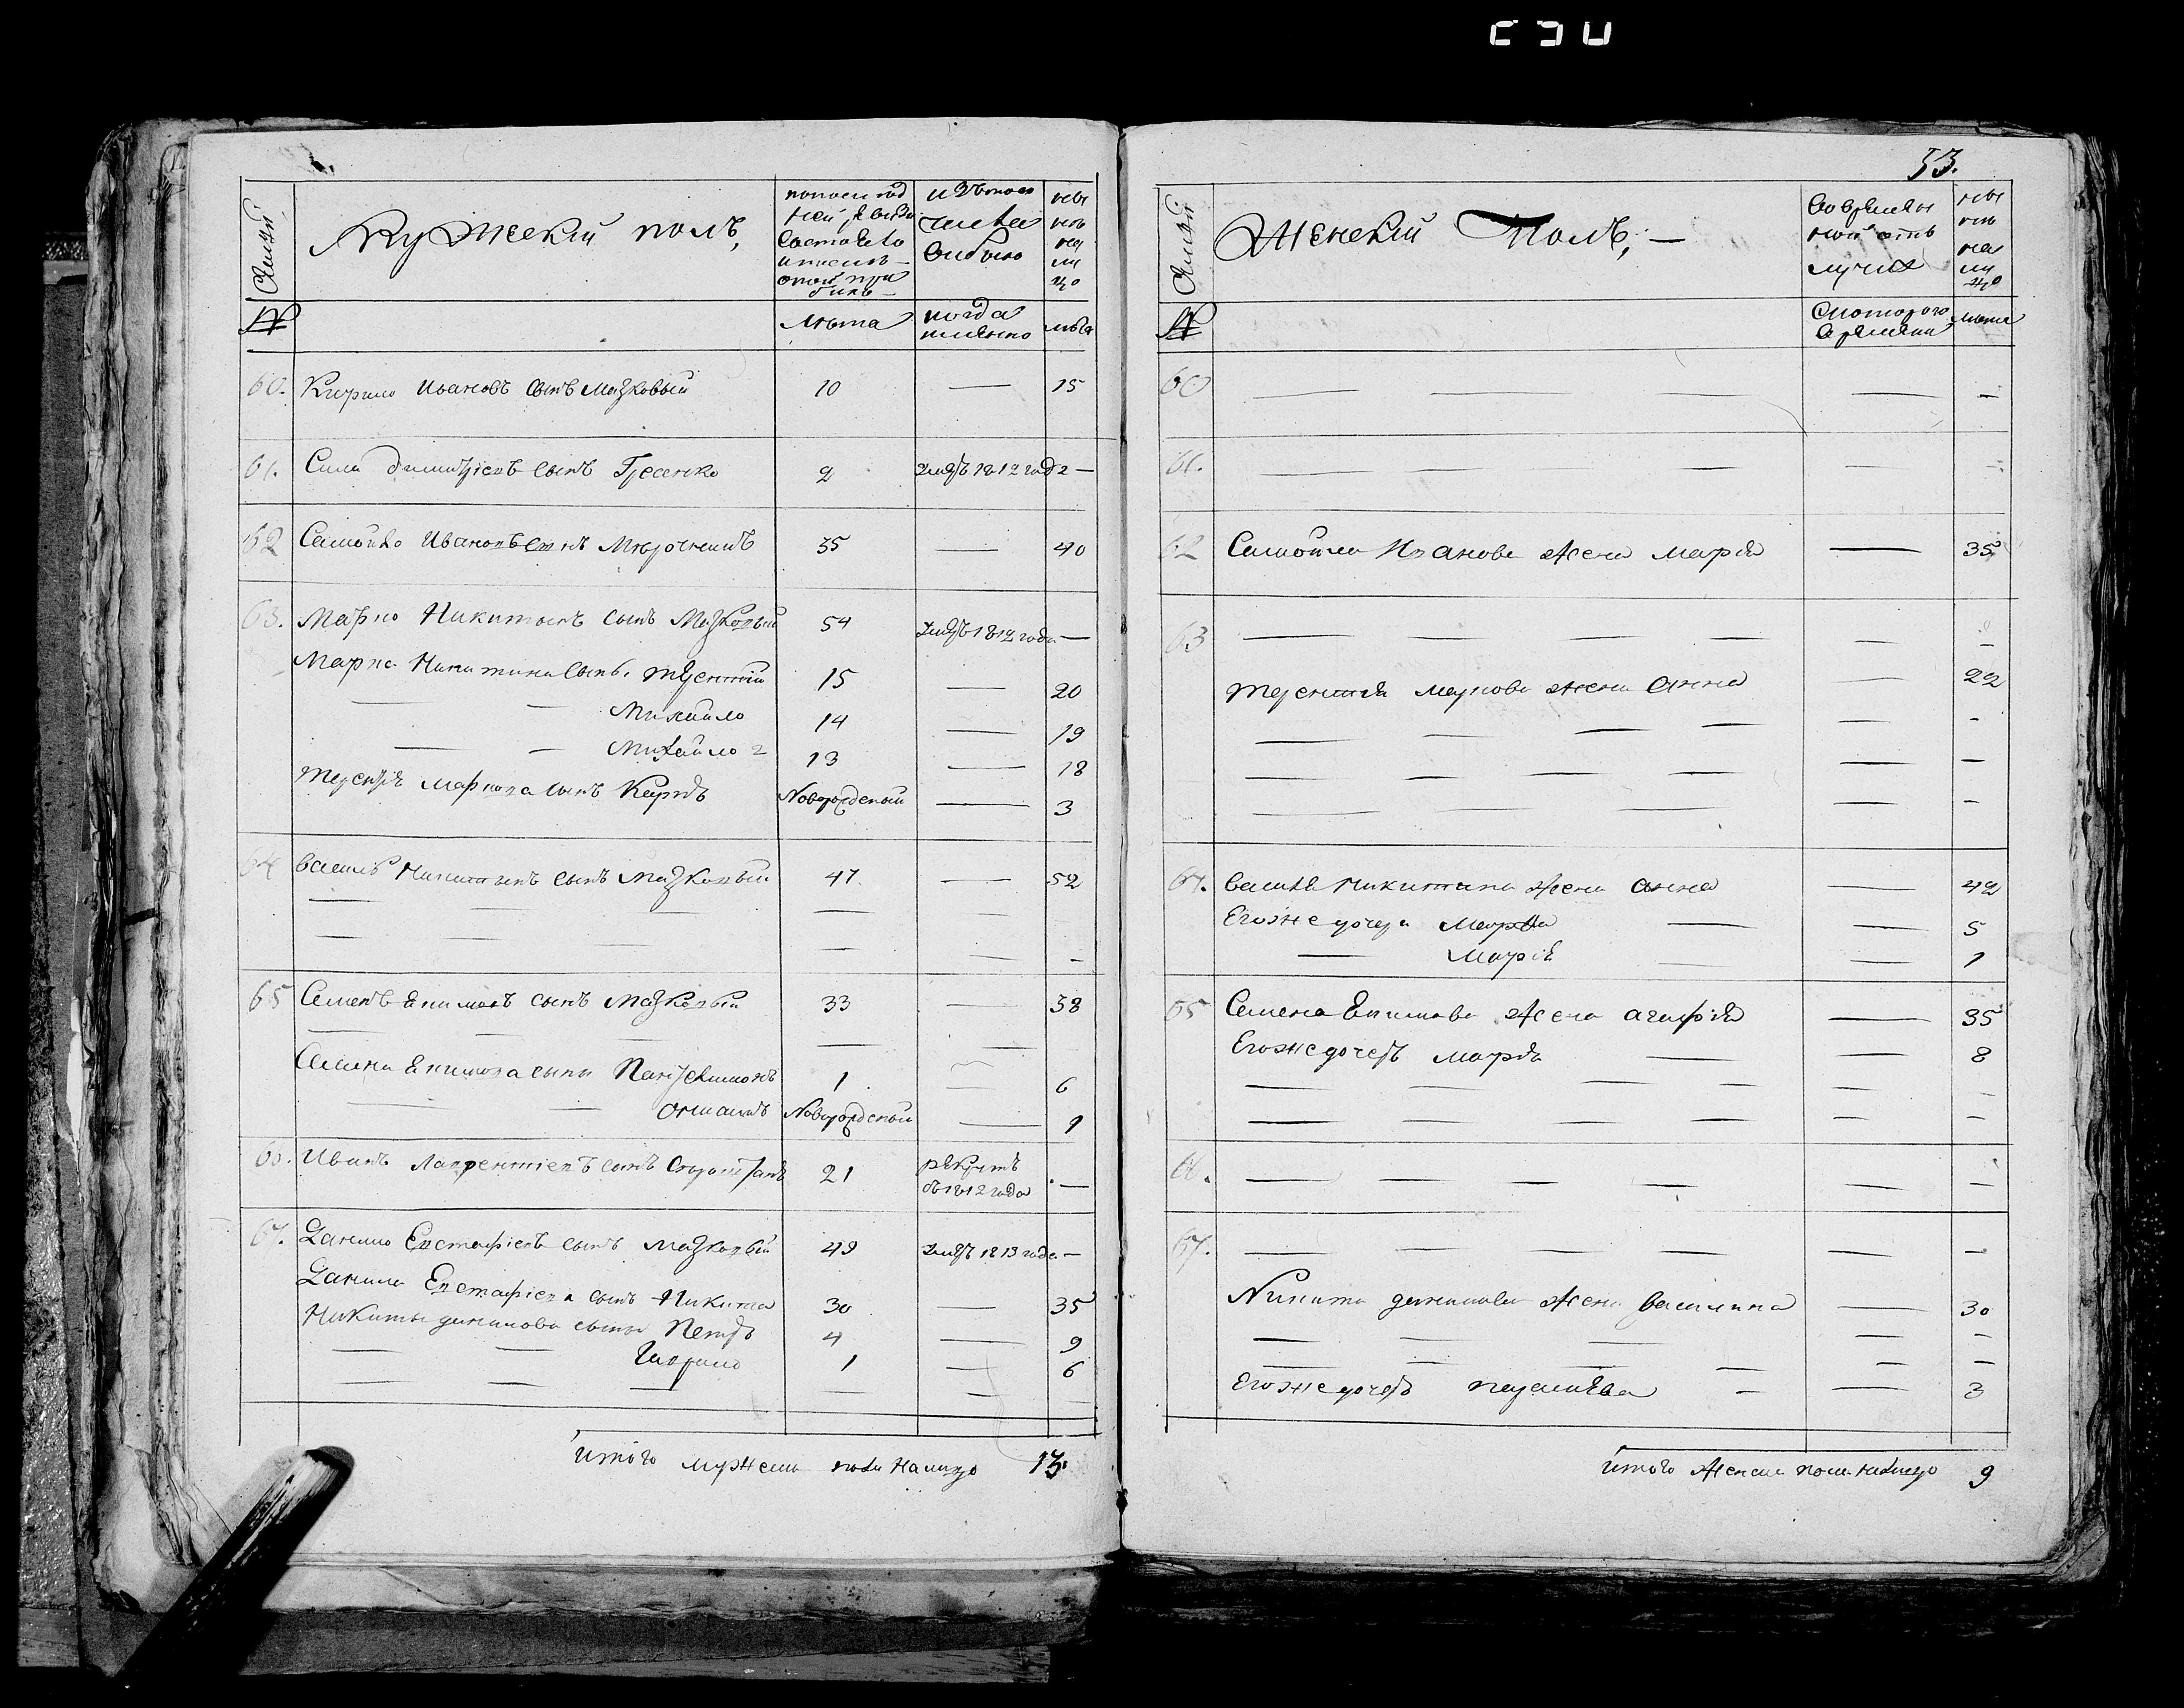 53.
Семьи
Мужеский полъ,
по последней ревизи состояло и после оной прибыло
изъ того числа выбыло
ныне на лицо
№
Лѣта
когда именно
лѣта
60. Кирило Ивановъ сынъ Мазковый 10 — 15
61. Сила Димитріевъ сынъ 2 умеръ 1812 года —
62 Самойло Ивановъ сынъ 35 — 40
63. Марко Никитинъ сынъ Мазковый 54 умеръ 1812 года —
Марка Никитина сынъ Терентій 15 — 20
— — Михайло 14 — 19
— — Михайло 2 13 — 18
Терентія Маркова сынъ Карпъ Новорожденый — 3
64 Василь Никитинъ сынъ Мазковый 47 — 52
65 Семенъ Екимовъ сынъ Мазковый 33 — 38
Семена Екимова сыны Пантелимонъ 1 — 6
— — Новорожденый — 1
66. Иванъ Лаврентіевъ сынъ 21 рекрутъ
въ 1812 года —
67. Данило Евстафіевъ сынъ Мазковый 49 умеръ 1813 года —
Данила Евстафіева сынъ Никита 30 — 35
Никиты Данилова сыны Петръ 4 — 9
— — Гаврило 1 — 6
итого мужеска пола на лицо 13.
Семьи
Женскій Полъ, —
во временной отлучке
ныне на лицо
№
с котораго времени
лѣта
60 — — — — —
61. — — — — —
62 Самойла Иванова жена Марія — 35
63 — — — — —
Терентія Маркова жена Анна — 22
64. Василя Никитина жена Анна — 42
Егоже дочери Марфа — — 5
— Марія — — 1
65 Семена Екимова жена Агафія — 35
Егоже дочерь Марія — — 8
66. — — — — — —
67. — — — — — —
Никиты Данилова жена Василина — 30
Егоже дочерь — — 3
итого женска пола на лицо 9